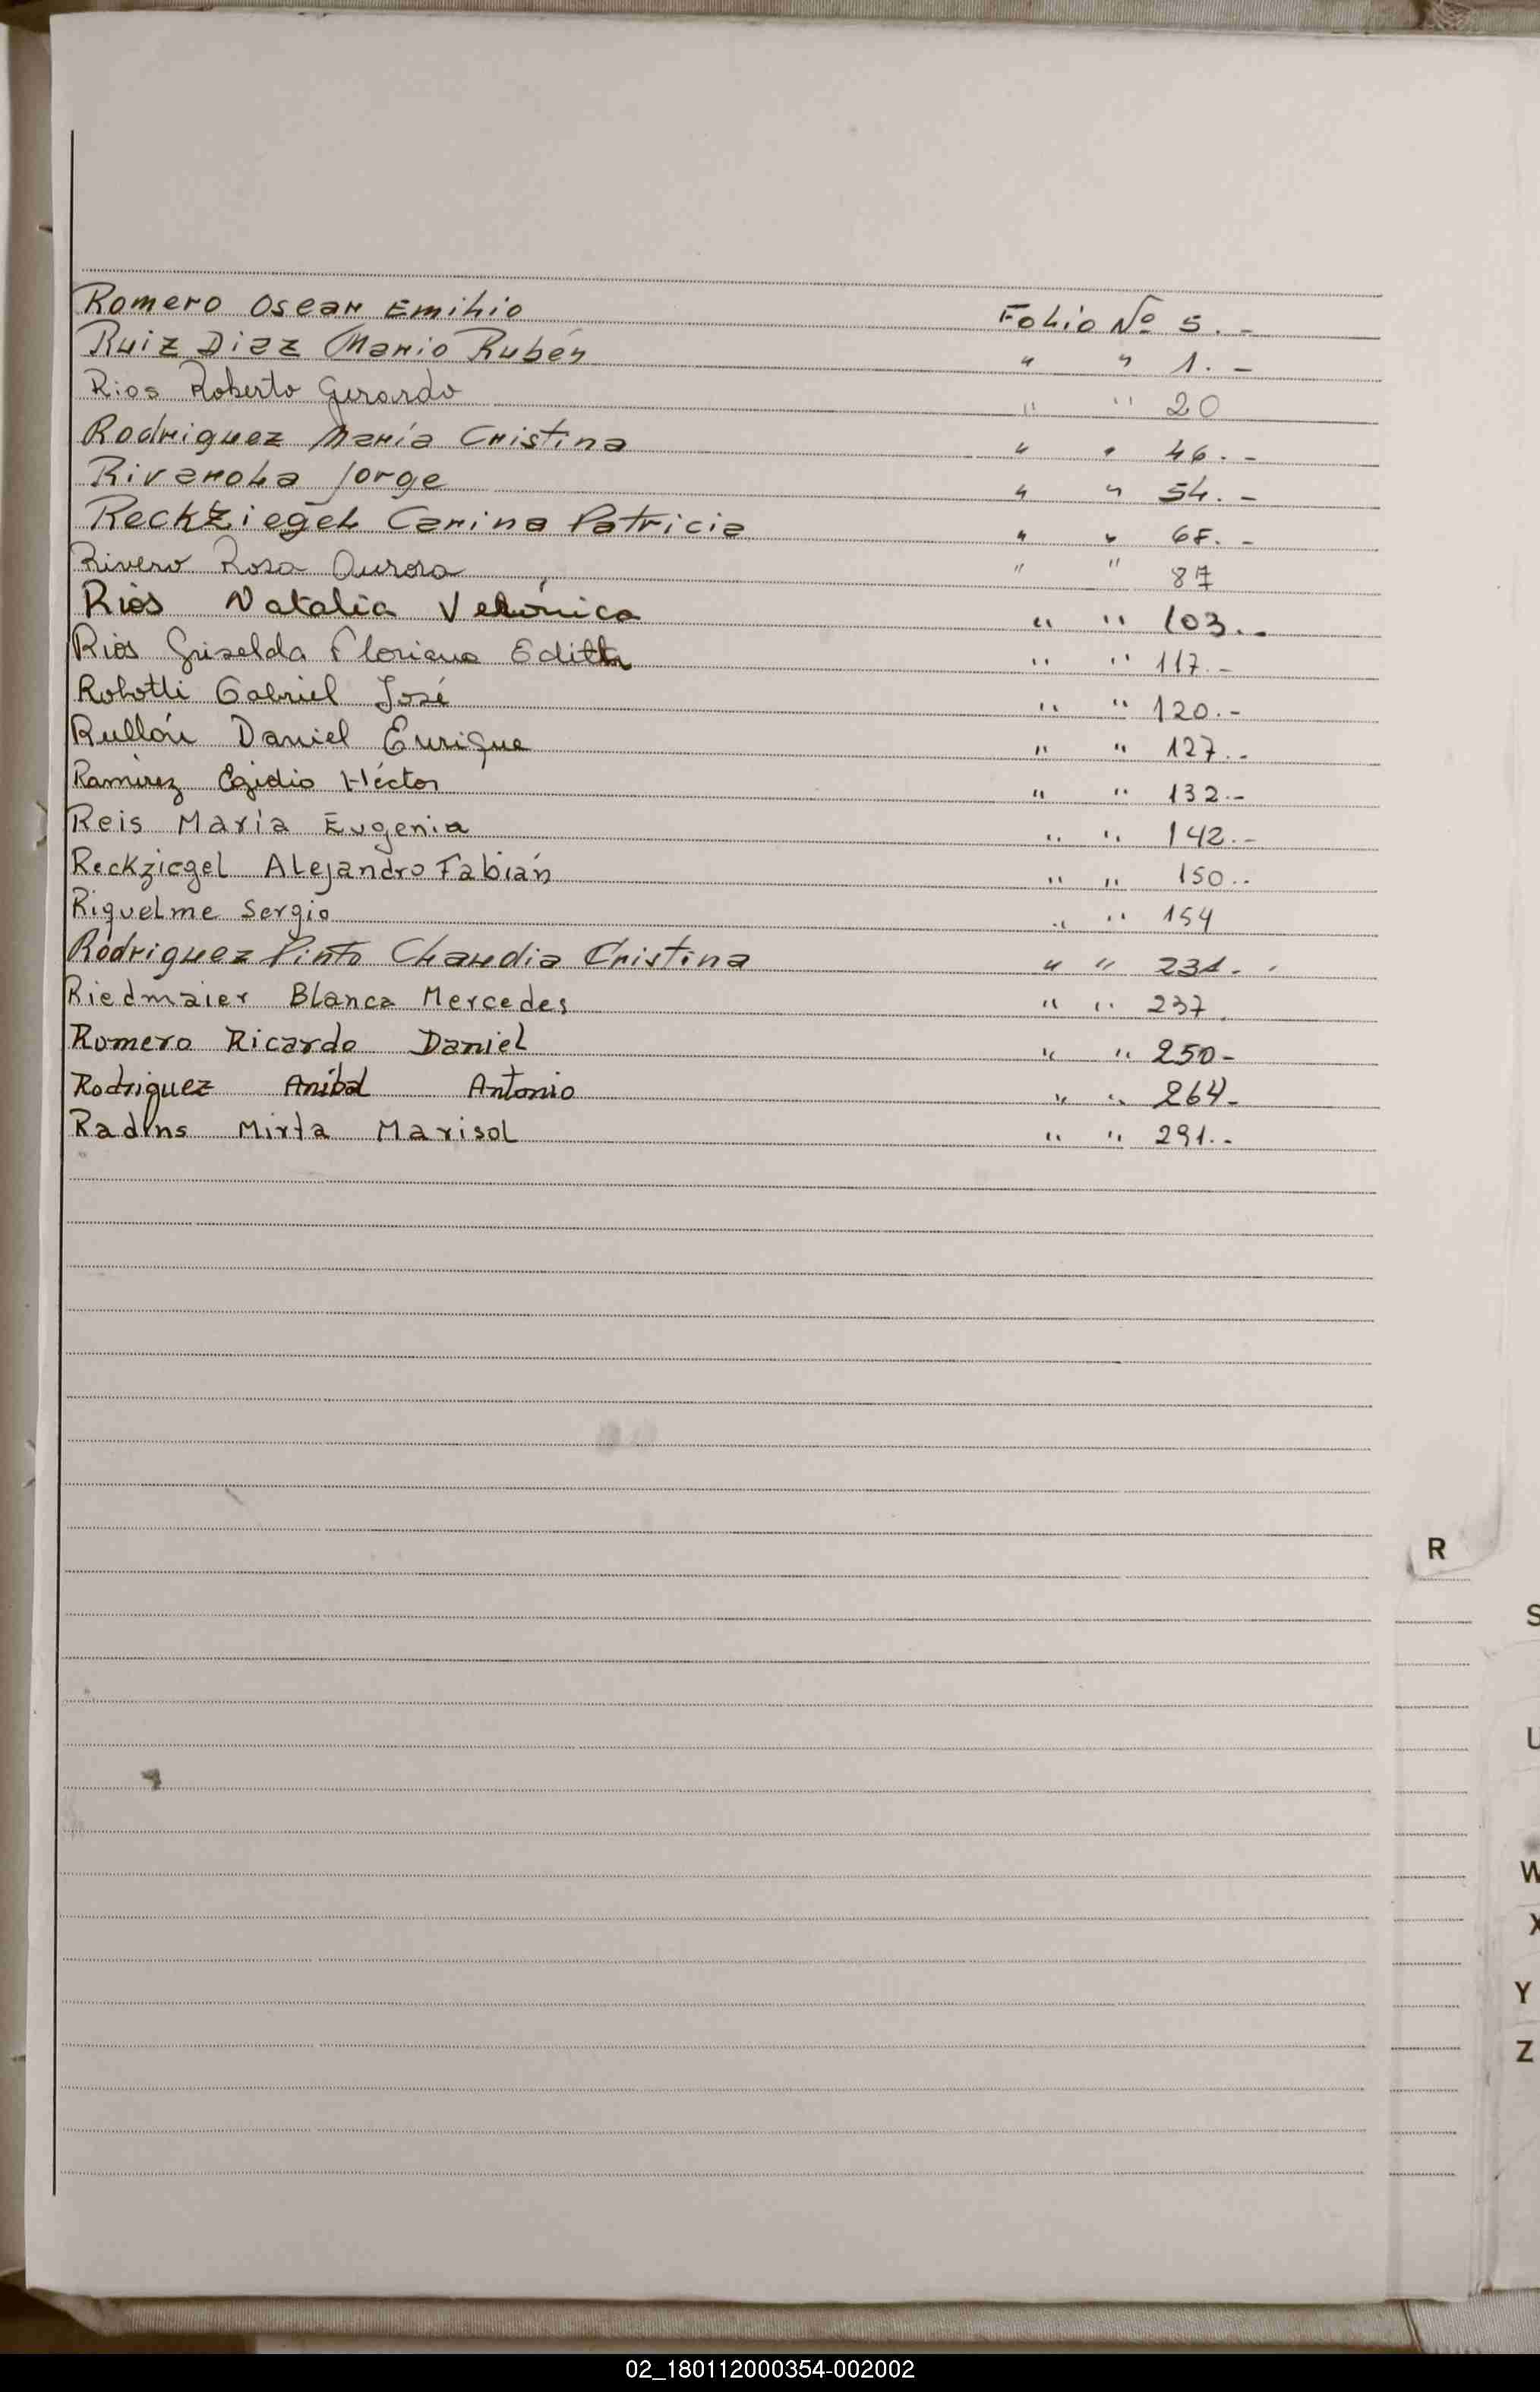 Romero Oscar Emilio Folio Nº 5.-
Ruiz Diaz Mario Rubén " " 1.-
Rios Roberto Gerardo " " 20
Rodriguez María Cristina " " 46.-
Rivarola Jorge " " 54.-
Reckziegel Carina Patricia " " 68.-
Rivero Rosa Aurora " " 87
Rios Natalia Verónica " " 103.-
Rios Griselda Floriana Edith " " 117.-
Robotti Gabriel José " " 120.-
Rullón Daniel Enrique " " 127.-
Ramirez Egidio Héctor " " 132.-
Reis María Eugenia " " 142.-
Reckziegel Alejandro Fabián " " 150.-
Riquelme Sergio " " 154
Rodriguez Pinto Claudia Cristina " " 231.-
Riedmaier Blanca Mercedes " " 237.
Romero Ricardo Daniel " " 250-
Rodriguez Anibal Antonio " " 264-
Radins Mirta Marisol " " 291.-
R
S
U
W
X
Y
Z
02_180112000354-002002